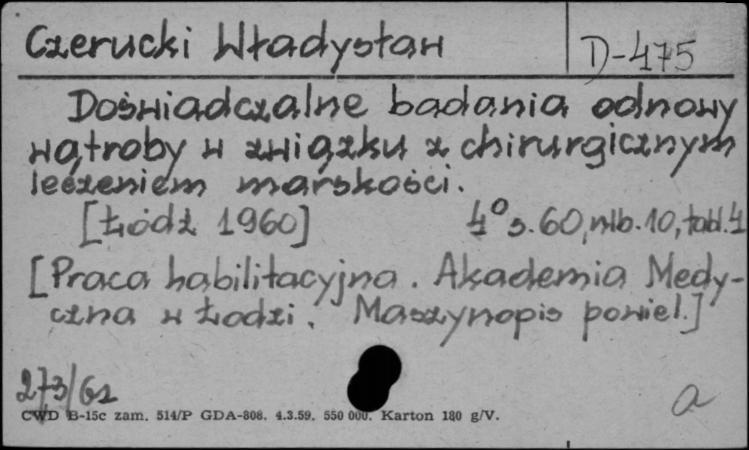 Czerucki Władysław
D-475
Doświadczalne badania odnowy
wątroby w związku z chirurgicznym
leczeniem marskości.
[Łódź 1960] 4° s. 60, nlb. 10, tabl. 4
[Praca habilitacyjna. Akademia Medy-
czna w Łodzi. Maszynopis powiel.]
273/62
a
CWD B-15c zam. 514/P GDA-808. 4.3.59. 550 000. Karton 180 g/V.